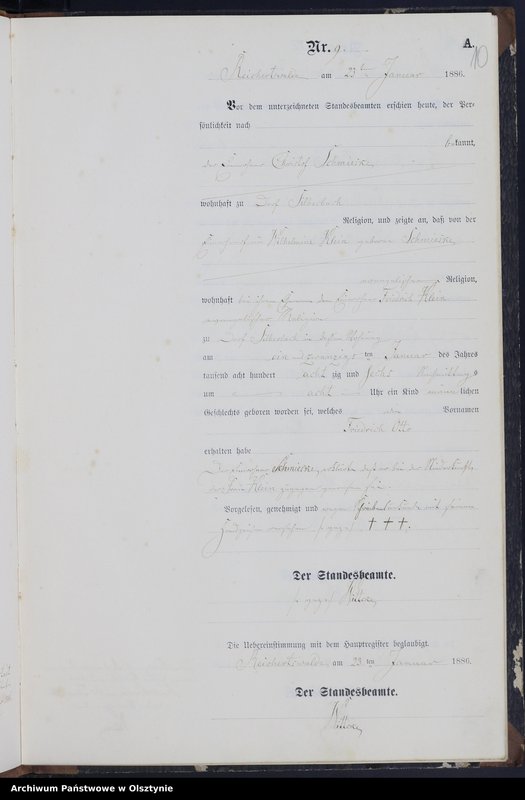 A.
10
Nr. 9.
Reichertswalde am 23 ten Januar 1886.
Vor dem unterzeichneten Standesbeamten erschien heute, der Per=
sönlichkeit nach
bekannt,
der Christof Schmieske
wohnhaft zu Dorf Silberbach
Religion, und zeigte an, daß von der
Wilhelmine Klein geborene Schmieske
evangelischer Religion,
wohnhaft bei ihrem Friedrich Klein
evangelischer Religion
zu Dorf Silberbach in dessen Wohnung
am ein und zwanzigs ten Januar des Jahres
tausend acht hundert acht zig und sechs Nachmittags
um acht Uhr ein Kind männlichen
Geschlechts geboren worden sei, welches den Vornamen
Friedrich Otto
erhalten habe
Der Schmieske, erklärte daß er bei der Niederkunft
der Frau Klein zugegen gewesen sei.
Vorgelesen, genehmigt und wegen mit seinem
Handzeichen versehen gezeichnet † † †.
Der Standesbeamte.
Die Uebereinstimmung mit dem Hauptregister beglaubigt.
Reichertswalde am 23 ten Januar 1886.
Der Standesbeamte.
Archiwum Państwowe w Olsztynie